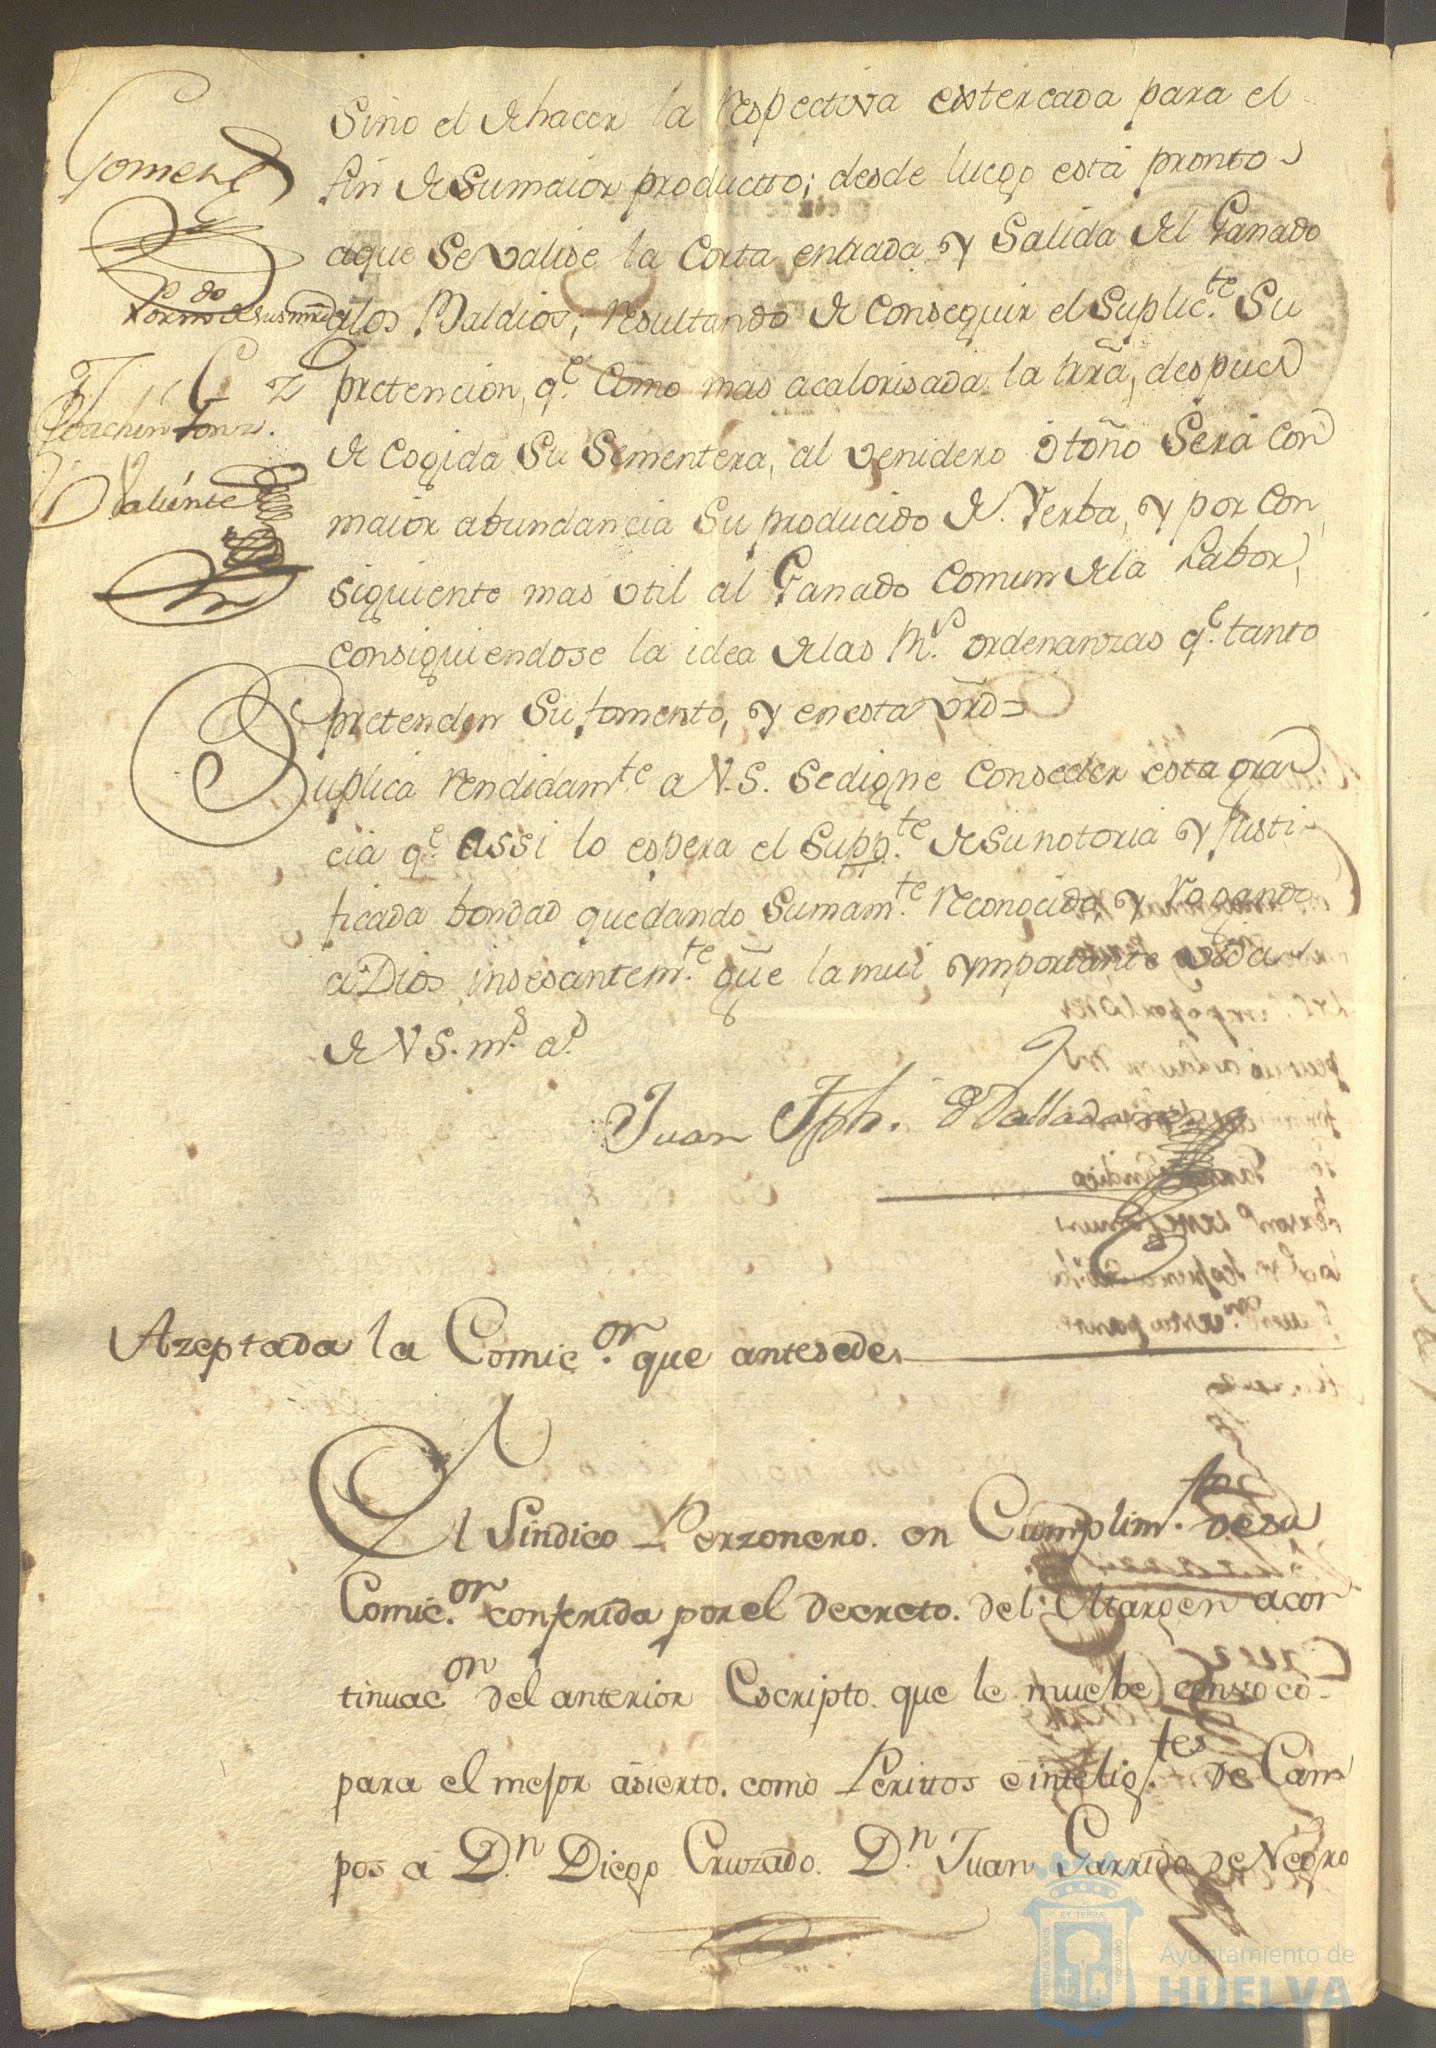 Gomez
Por m.do de sus mrds
Joachin Gonz.
Valiente
Sino el de hacer la respectiva estercada para el
fin de su maior productto; desde luego està pronto
aque se valise la Corta entrada y Salida del Ganado
alos Baldios; resultando de conseguir el Suplic.te Su
pretencion, q.e como mas acalorisada la trrã, despues
de cogida Su Sementera, al venidero otoño Serà con
maior abundancia Su producido de Yerba, y por con
siguiente mas vtil al Ganado Comun de la Labor,
consiguiendose la idea de las R.s ordenanzas q.e tanto
pretenden Su fomento, y en esta vrd=
Suplica rendidam.te a V.S. se digne conseder esta gra
cia q.e assi lo espera el Supp.te de su notoria y Justi
ficada bondad quedando Sumam.te reconocido, y rogando
a Dios insesantem.te gũe la mui ymportante vida
de VS. m.s a.s
Juan Jph. Valladares
Azeptada la Comic.on que antesede.
El Sindico Perzonero. en Cumplim.to de su
Comic.on conferida por el decreto. del Margen acon
tinuac.on del anterior Escripto. que le muebe, convocó
para el mejor asierto. como Perittos e intelig.tes de Cam
pos á D.n Diego Cruzado. D.n Juan Garrido de Negro
Ayuntamiento de
HUELVA